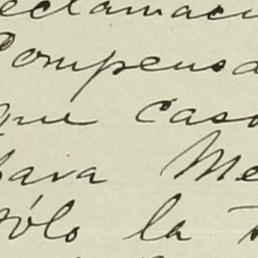 eclamaci
Compensa
que caso
para Me
sólo la